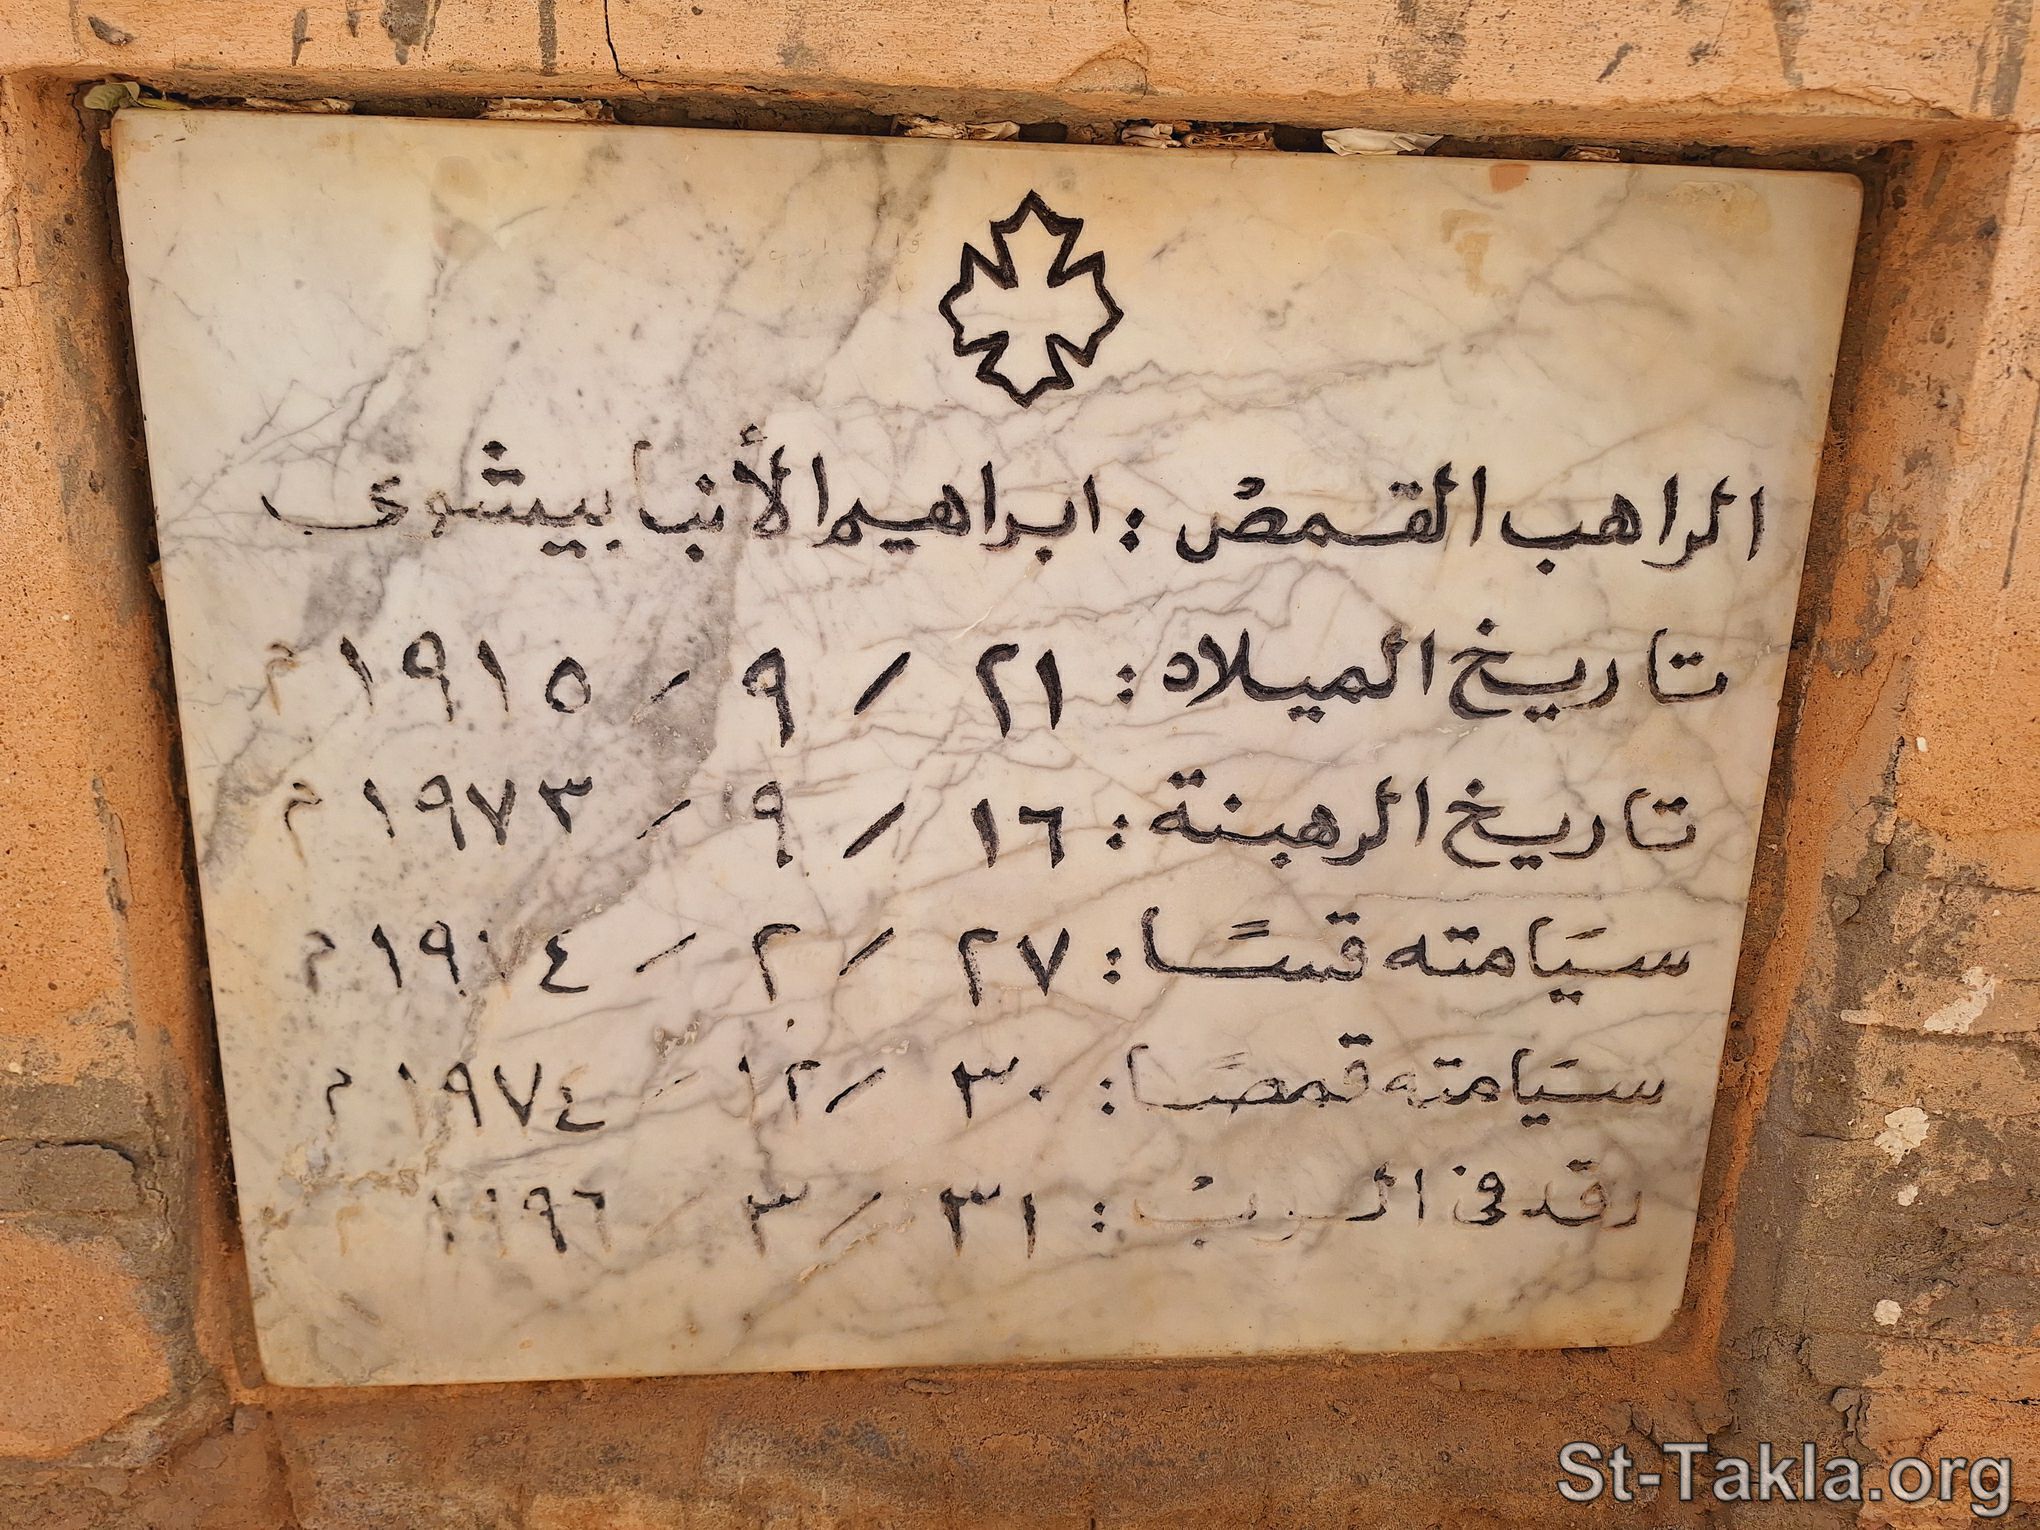 الراهب القمص : ابراهيم الأنبا بيشوى
تاريخ الميلاد : ٢١ / ٩ / ١٩١٥ م
تاريخ الرهبنة : ١٦ / ٩ / ١٩٧٣ م
سيَامته قسًا : ٢٧ / ٢ / ١٩٧٤ م
سيَامته قمصًا : ٣٠ / ١٢ / ١٩٧٤ م
رقد فى الرب : ٣١ / ٣ / ١٩٩٦ م
St-Takla.org